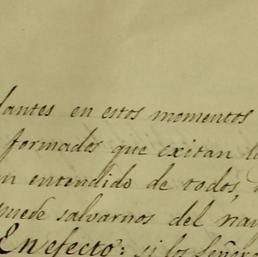 lantes en estos momentos
formados que exitan l
n entendido de todos,
puede salvarnos del na
En efecto: si los Señor